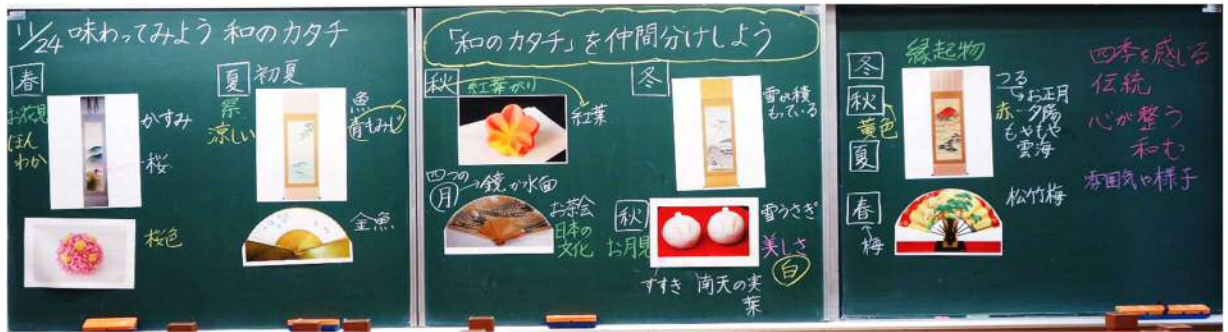 11/24 味わってみよう 和のカタチ
春
お花見
ほんわか
かすみ
桜
桜色
夏 初夏
祭
涼しい
魚
青もみじ
金魚
「和のカタチ」を仲間分けしよう
秋 紅葉がり
紅葉
四つの
月→鏡か水面
お茶会
日本の
文化
冬
雪が積
もっている
秋
お月見
雪うさぎ
美しさ
白
すすき 南天の実
葉
縁起物
冬
秋
黄色
夏
春
梅
つる
お正月
赤…夕陽
もやもや
雲海
松竹梅
四季を感じる
伝統
心が整う
和む
雰囲気や様子